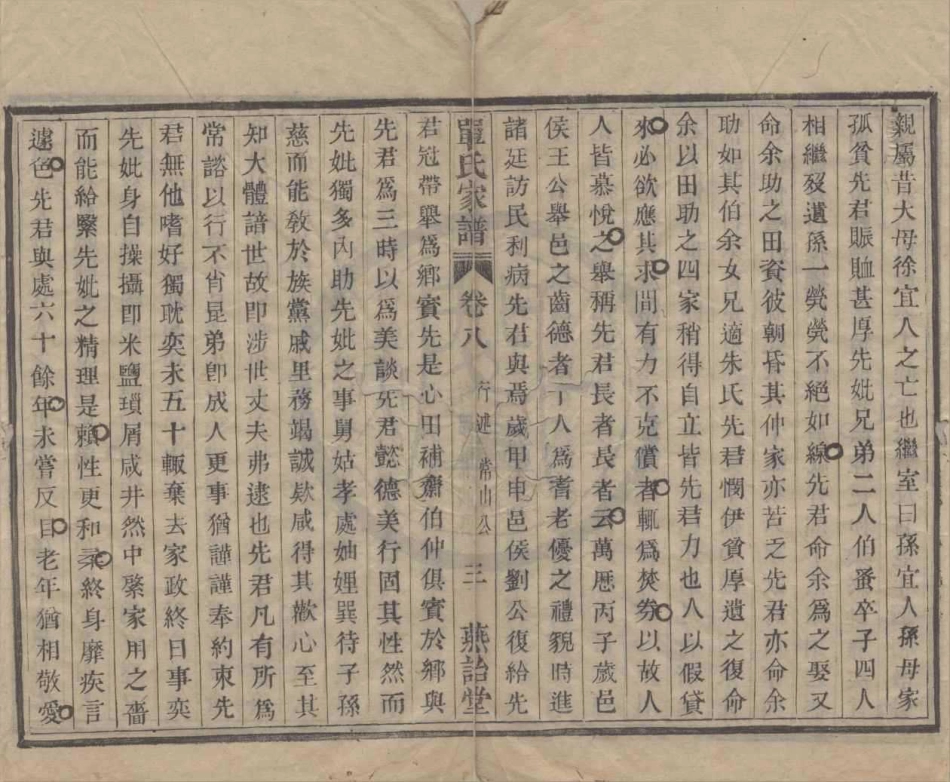 親屬昔大母徐宜人之亡也繼室曰孫宜人孫母家
孤貧先君賑賉甚厚先妣兄弟二人伯蚤卒子四人
相繼歿遺孫一煢煢不絕如線先君命余爲之娶又
命余助之田資彼朝昏其仲家亦苦乏先君亦命余
助如其伯余女兄適朱氏先君憫伊貧厚遺之復命
余以田助之四家稍得自立皆先君力也人以假貸
來必欲應其求間有力不克償者輒爲焚劵以故人
人皆慕悅之舉稱先君長者長者云萬厯丙子歲邑
侯王公舉邑之齒德者十人爲耆老優之禮貌時進
諸廷訪民利病先君與焉歲甲申邑侯劉公復給先
單氏家譜 卷八 行述 常山公 三 燕詒堂
君冠帶舉爲鄉賓先是心田補齋伯仲俱賓於鄉與
先君爲三時以爲美談先君懿德美行固其性然而
先妣獨多內助先妣之事舅姑孝處妯娌巽待子孫
慈而能敎於族黨戚里務竭誠欵咸得其歡心至其
知大體諳世故即涉世丈夫弗逮也先君凡有所爲
常諮以行不肖昆弟卽成人更事猶謹謹奉約束先
君無他嗜好獨耽奕未五十輙棄去家政終日事奕
先妣身自操攝即米鹽瑣屑咸井然中綮家用之嗇
而能給繄先妣之精理是賴性更和柔終身靡疾言
遽色先君與處六十餘年未嘗反目老年猶相敬愛